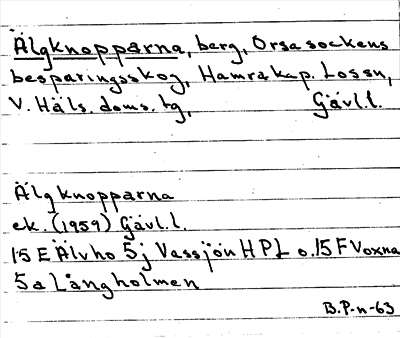 Älgknopparna, berg, Orsa sockens
besparingsskog, Hamra kap. Lossn,
V. Häls. doms. tg, Gävl.l.
Älgknopparna
ek. (1959) Gävl.l.
15 E Älvho 5j Vassjön HPL o. 15 F Voxna
5a Långholmen
B.P-n-63